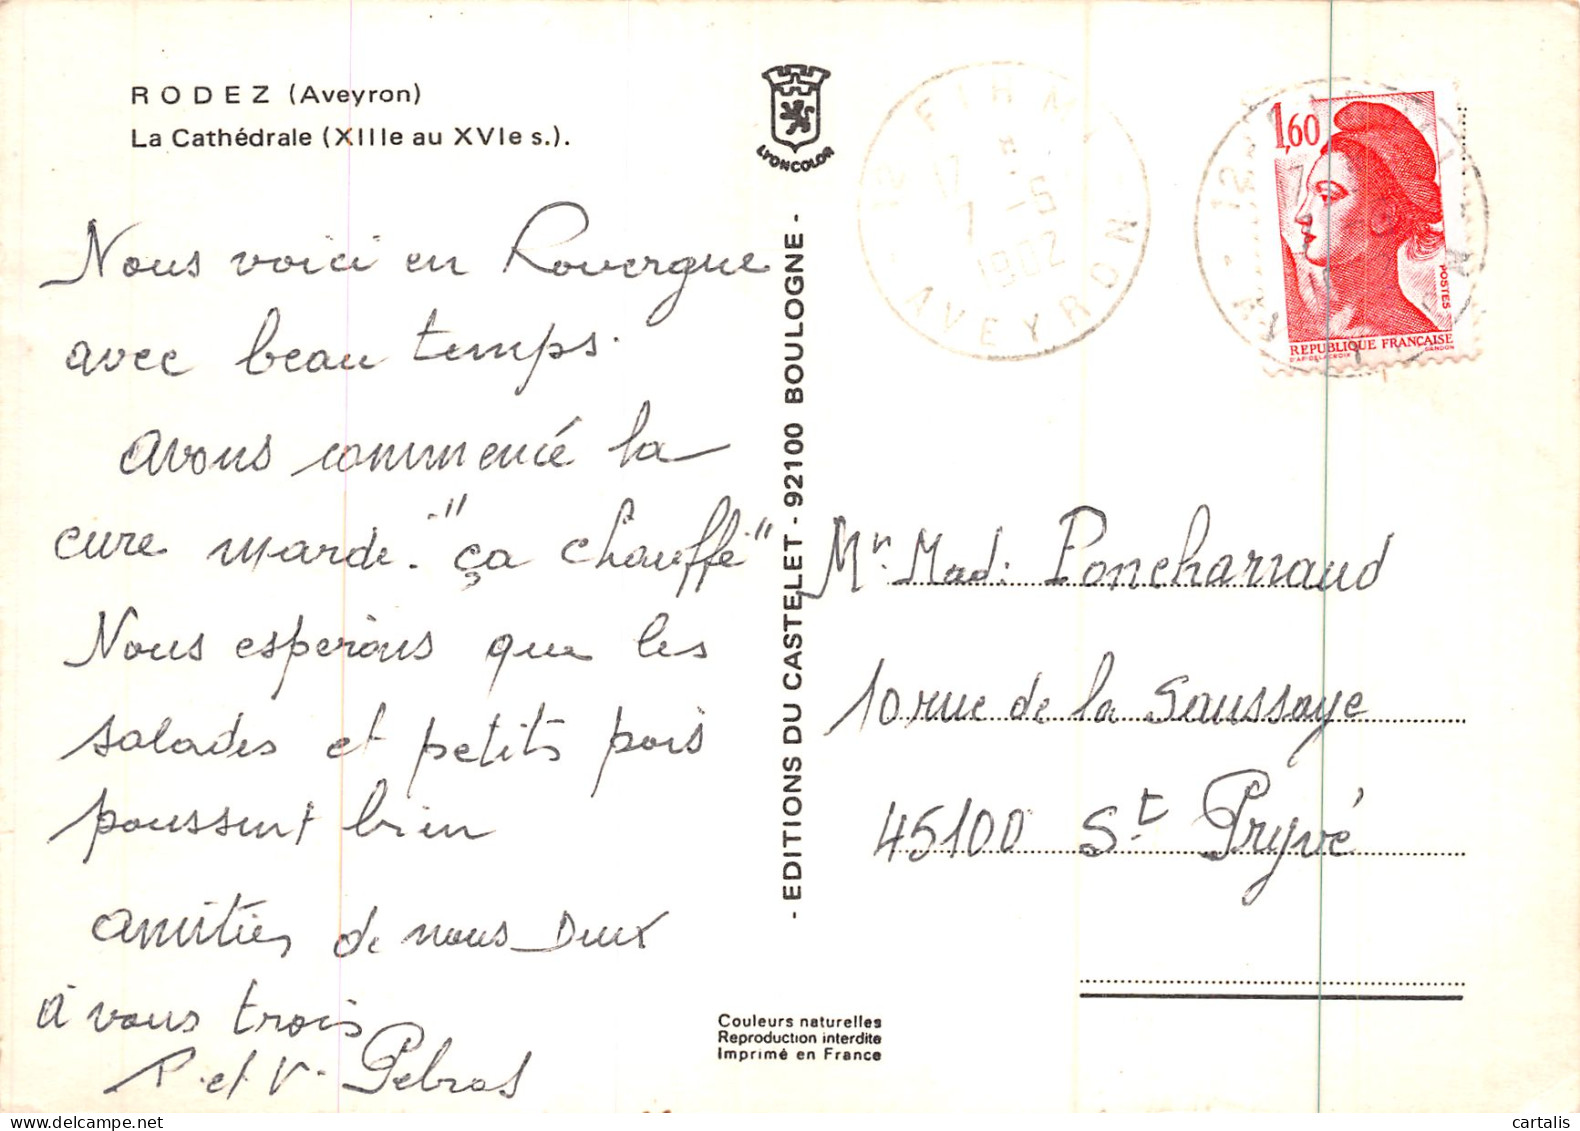 RODEZ (Aveyron)
La Cathédrale (XIIIe au XVIe s.).
Nous voici en Rouergue
avec beau temps.
avons commencé la
cure marde. "ça chauffe"
Nous esperons que les
salades et petits pois
poussent bien
amitiés de nous Deux
à vous trois
P. et V. Pebras
LYONCOLOR
- EDITIONS DU CASTELET - 92100 BOULOGNE -
Couleurs naturelles
Reproduction interdite
Imprimé en France
12 FIRMI
17
7 -5
1982
AVEYRON
1,60
POSTES
REPUBLIQUE FRANÇAISE
D'AP. DELACROIX GANDON
12
Mr. Mad. Poncharraud
10 rue de la Saussaye
45100 St Pryvé
cartalis